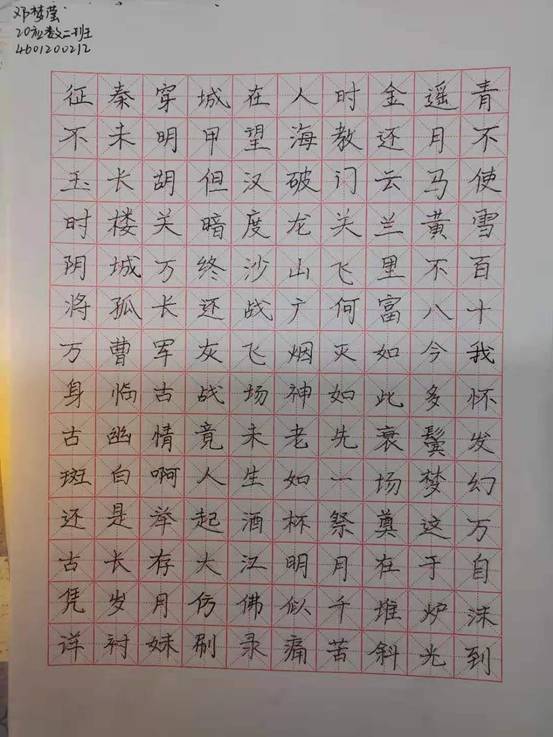 邓梦莹
20应数二班
4601200212
征秦穿城在人时金遥青
不未明甲望海教还月不
玉长胡但汉破门云马使
时楼关暗度龙关兰黄雪
阴城万终沙山飞里不百
将孤长还战广何富八十
万曹军灰飞烟灭如今我
身临古战场神如此多怀
古幽情竟未老先衰鬓发
斑白啊人生如一场梦幻
还是举起酒杯祭奠这万
古长存大江明月在于自
凭岁月仿佛似千堆炉沫
详衬妹刷录痛苦斜光到